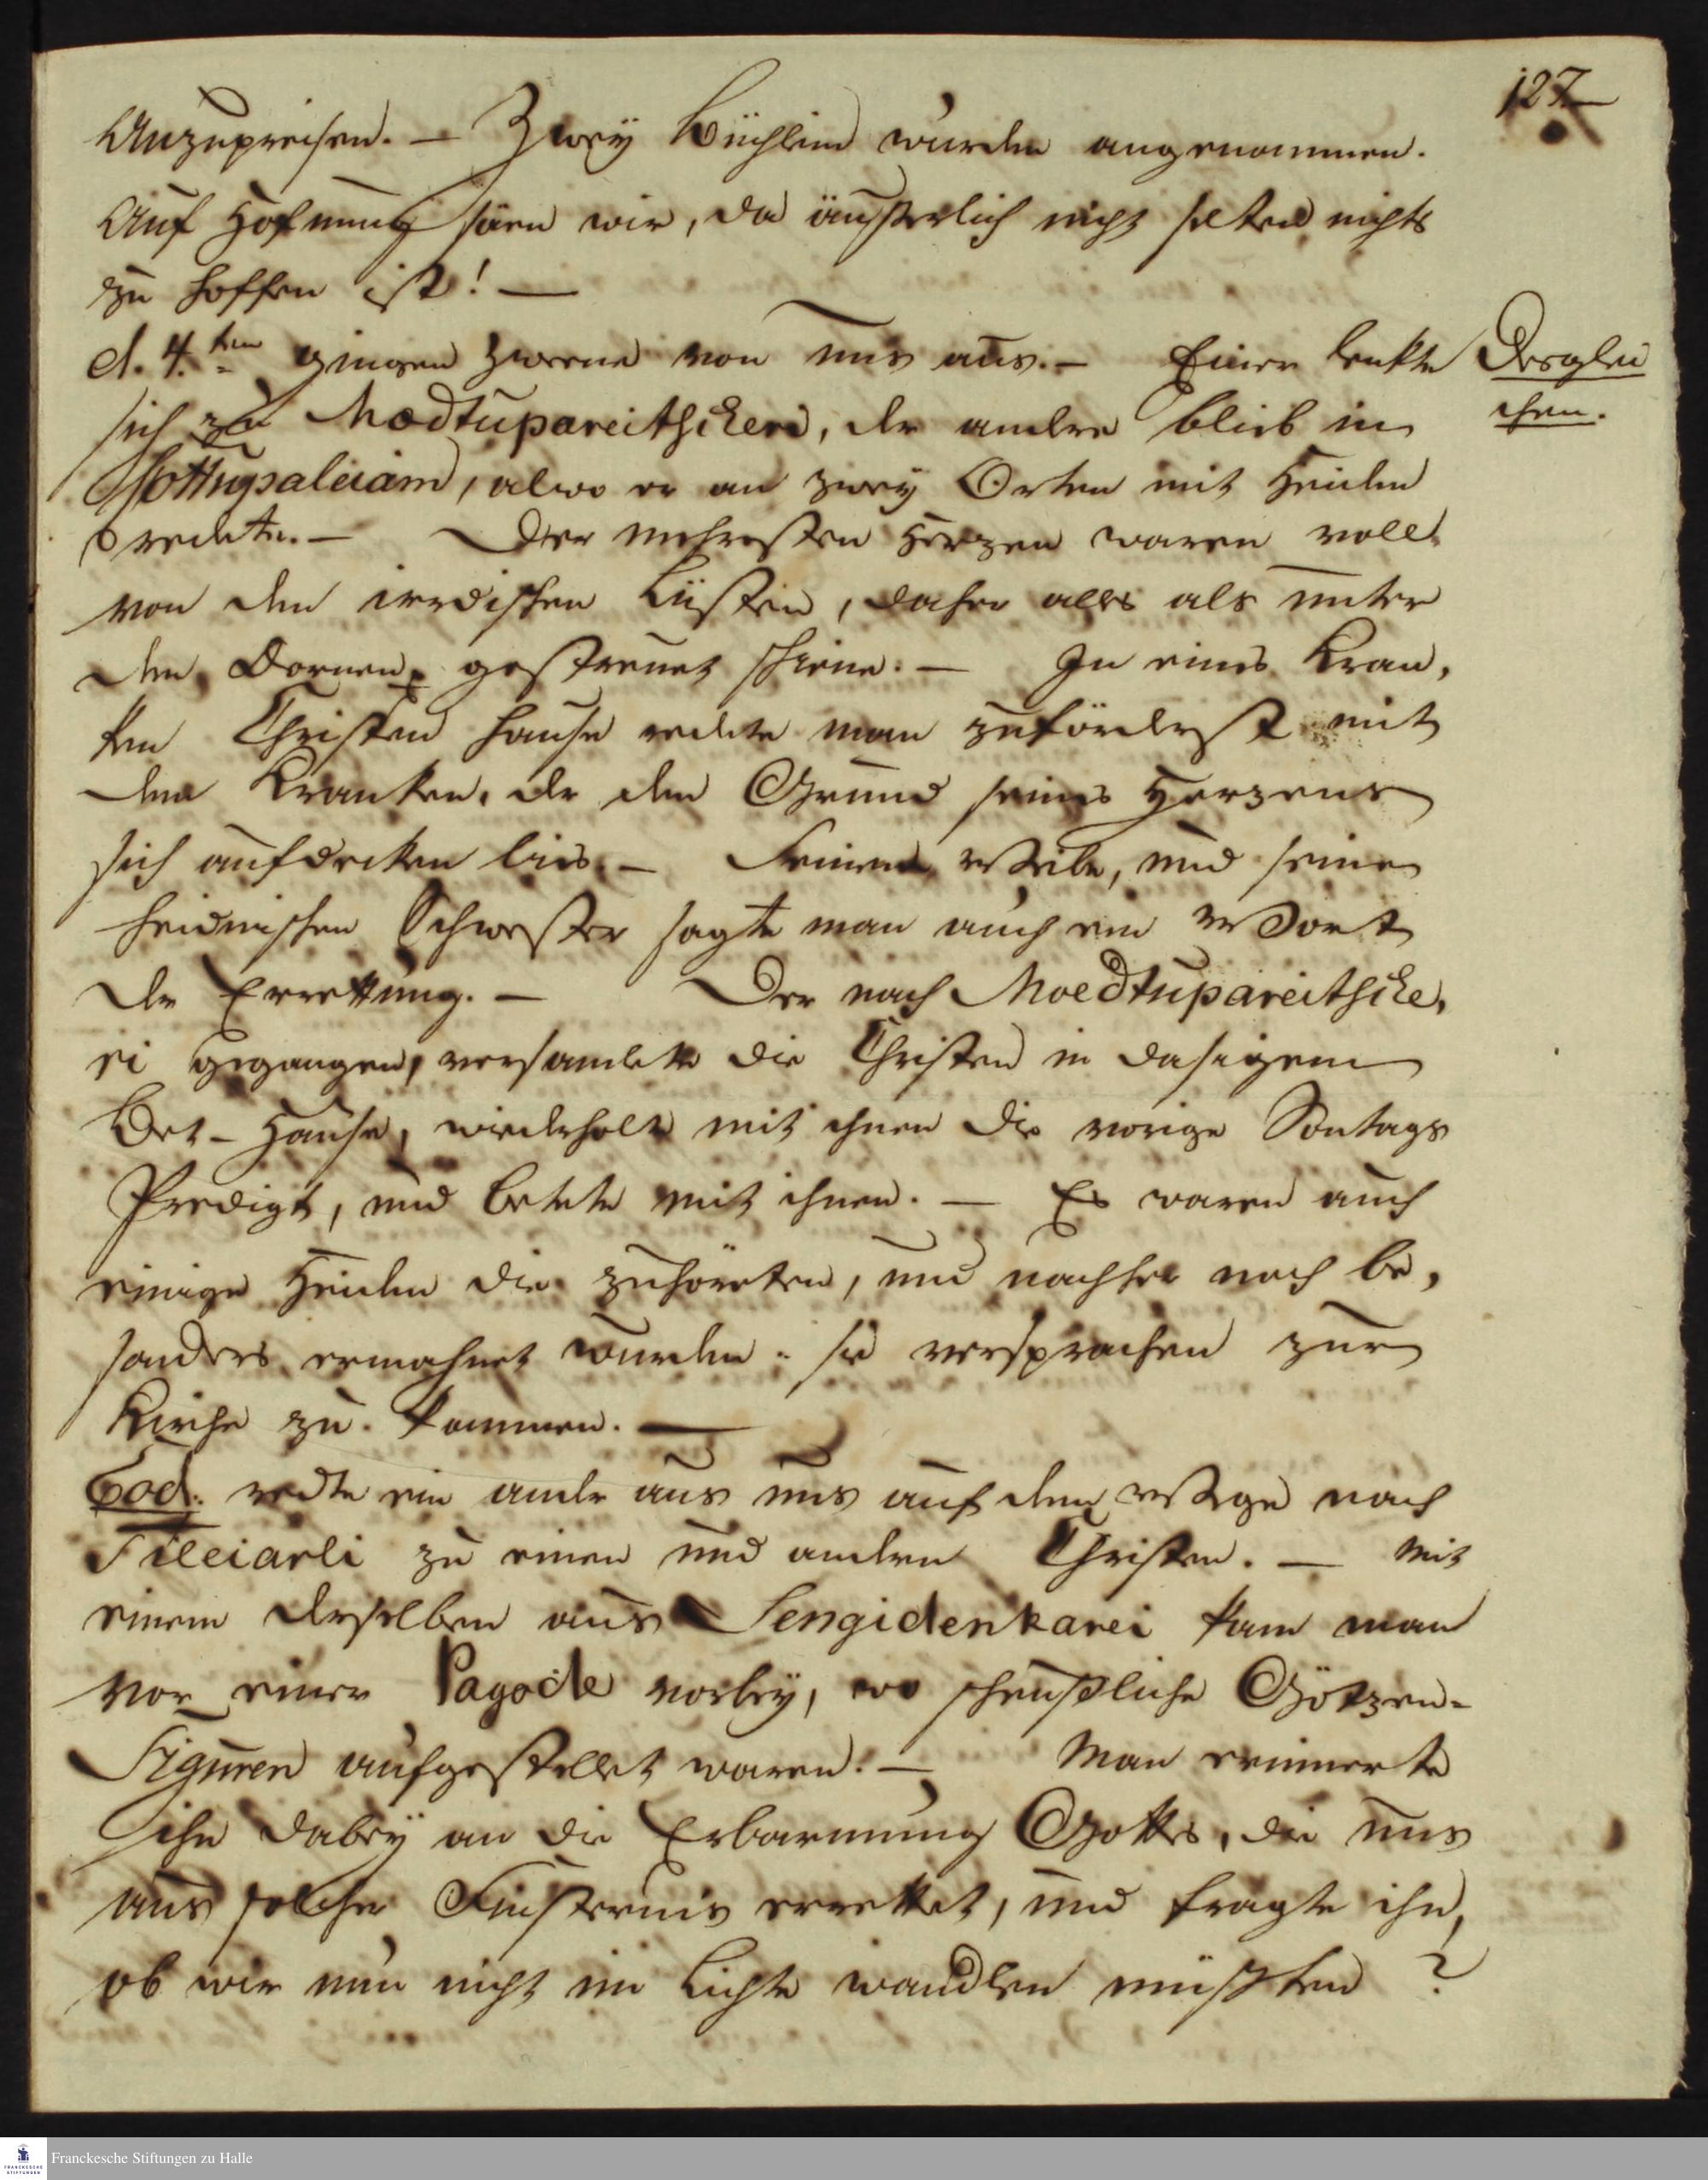 127
Anzupreisen. – Zwey Büchlein wurden angenommen.
Auf Hofnung säen wir, da äußerlich nicht selten nichts
zu hoffen ist! —
d. 4.ten gingen zweene von uns aus. – Einer lenkte
Desglei
chen.
sich zu Moedtupareitscheri, der andre blieb in
Sottupaleiam, alwo er an zwey Orten mit Heiden
redete. – Der mehresten Herzen waren voll
von den irrdischen Lüsten, daher alles als unter
den Dornen gestreuet schiene. – In eines Kran,
ken Christen Hause redete man zuförderst mit
dem Kranken, der den Grund seines Herzens
sich aufdecken lies. – Seinem Weibe, und seiner
heidnischen Schwester sagte man auch ein Wort
der Errettung. – Der nach Moedtupareitsche,
ri gegangen, versamlete die Christen in dasigem
Bet-Hause, wiederholte mit ihnen die vorige Sontags
Predigt, und betete mit ihnen. – Es waren auch
einige Heiden die zuhöreten, und nachher noch be,
sonders ermahnet wurden: sie versprachen zur
Kirche zu kommen. —
Eod: redte ein andr aus uns auf dem Wege nach
Tilleiarli zu einen und andern Christen. — Mit
einem derselben aus Sengidenkarei kam man
vor einer Pagode vorbey, wo scheußliche Götzen-
Figuren aufgestellet waren. – Man erinnerte
ihn dabey an die Erbarmung Gottes, die uns
aus solcher Finsternis errettet, und fragte ihn,
ob wir nun nicht im Lichte wandlen müßten ?
Franckesche Stiftungen zu Halle